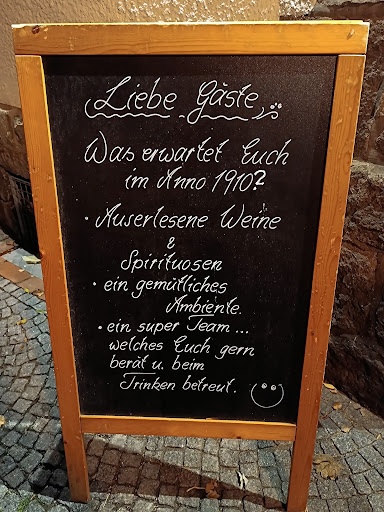 Liebe Gäste,
Was erwartet Euch
im Anno 1910?
• Auserlesene Weine
&
Spirituosen
• ein gemütliches
Ambiente.
• ein super Team ...
welches Euch gern
berät u. beim
Trinken betreut.